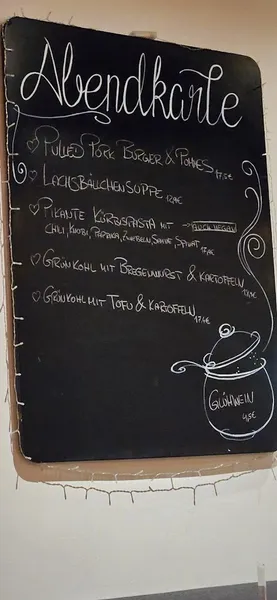 Abendkarte
♡ Pulled Pork Burger & Pommes 17,5€
♡ Lachsbällchensuppe 12,9€
♡ Pikante Kürbispasta mit → auch vegan
Chili, Knobi, Paprika, Zwiebeln, Sahne, Spinat
♡ Grünkohl mit Bregenwurst & Kartoffeln
♡ Grünkohl mit Tofu & Kartoffeln
17,4€
Glühwein
4,5€